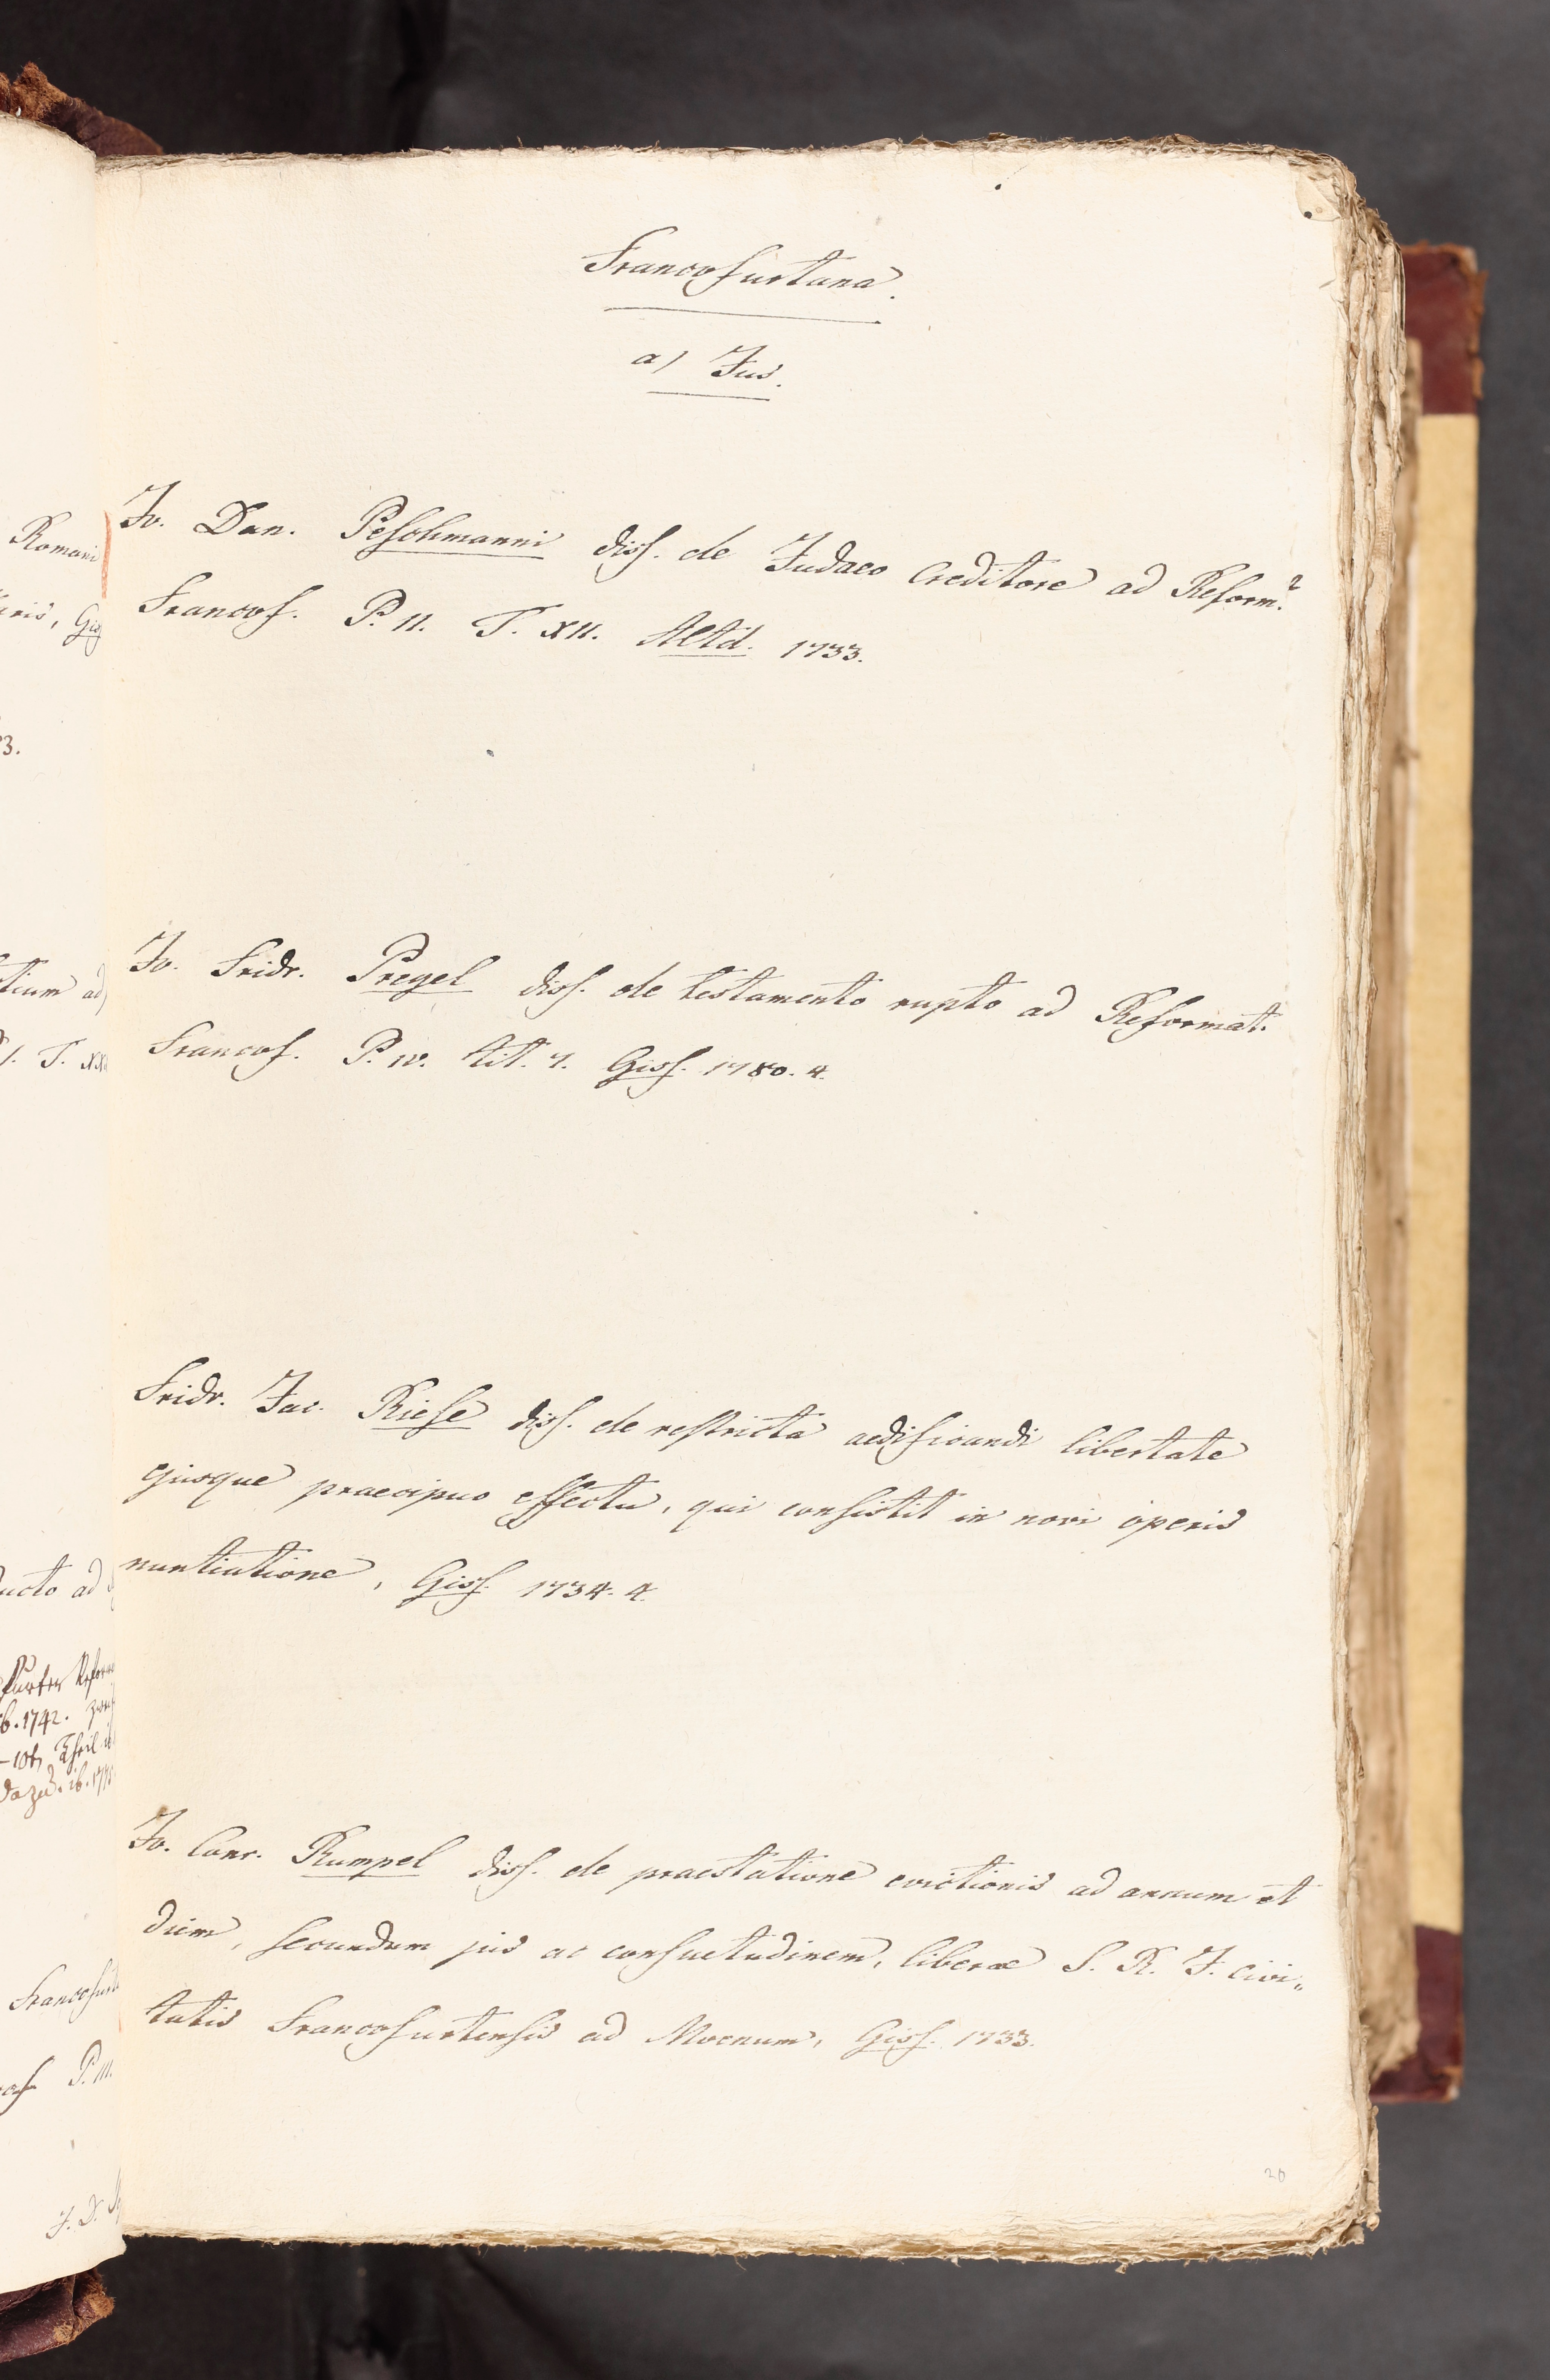 Romani
3.
tium ad
1. T. XX
ducto ad
b. 1742.
dazu. ib. 177
P. III.
Francofurtana.
a) Jus.
Jo. Dan. Peschmanni diss. de Judaeo Creditore ad Reform.
Francof. P. II. T. XII. Altd. 1733.
Jo. Fridr. Pregel diss. de testamento rupto ad Reformat.
Francof. P. IV. tit. 7. Giss. 1780. 4.
Fridr. Jac. Riese diss. de restricta aedificandi libertate
ejusque praecipuo effectu, qui consistit in novi operis
nuntiatione, Giss. 1734. 4.
Jo. Conr. Rumpel diss. de praestatione evictionis ad annum et
diem, secundum jus ac consuetudinem, liberae S. R. J. civi„
tatis Francofurtensis ad Moenum, Giss. 1733.
20